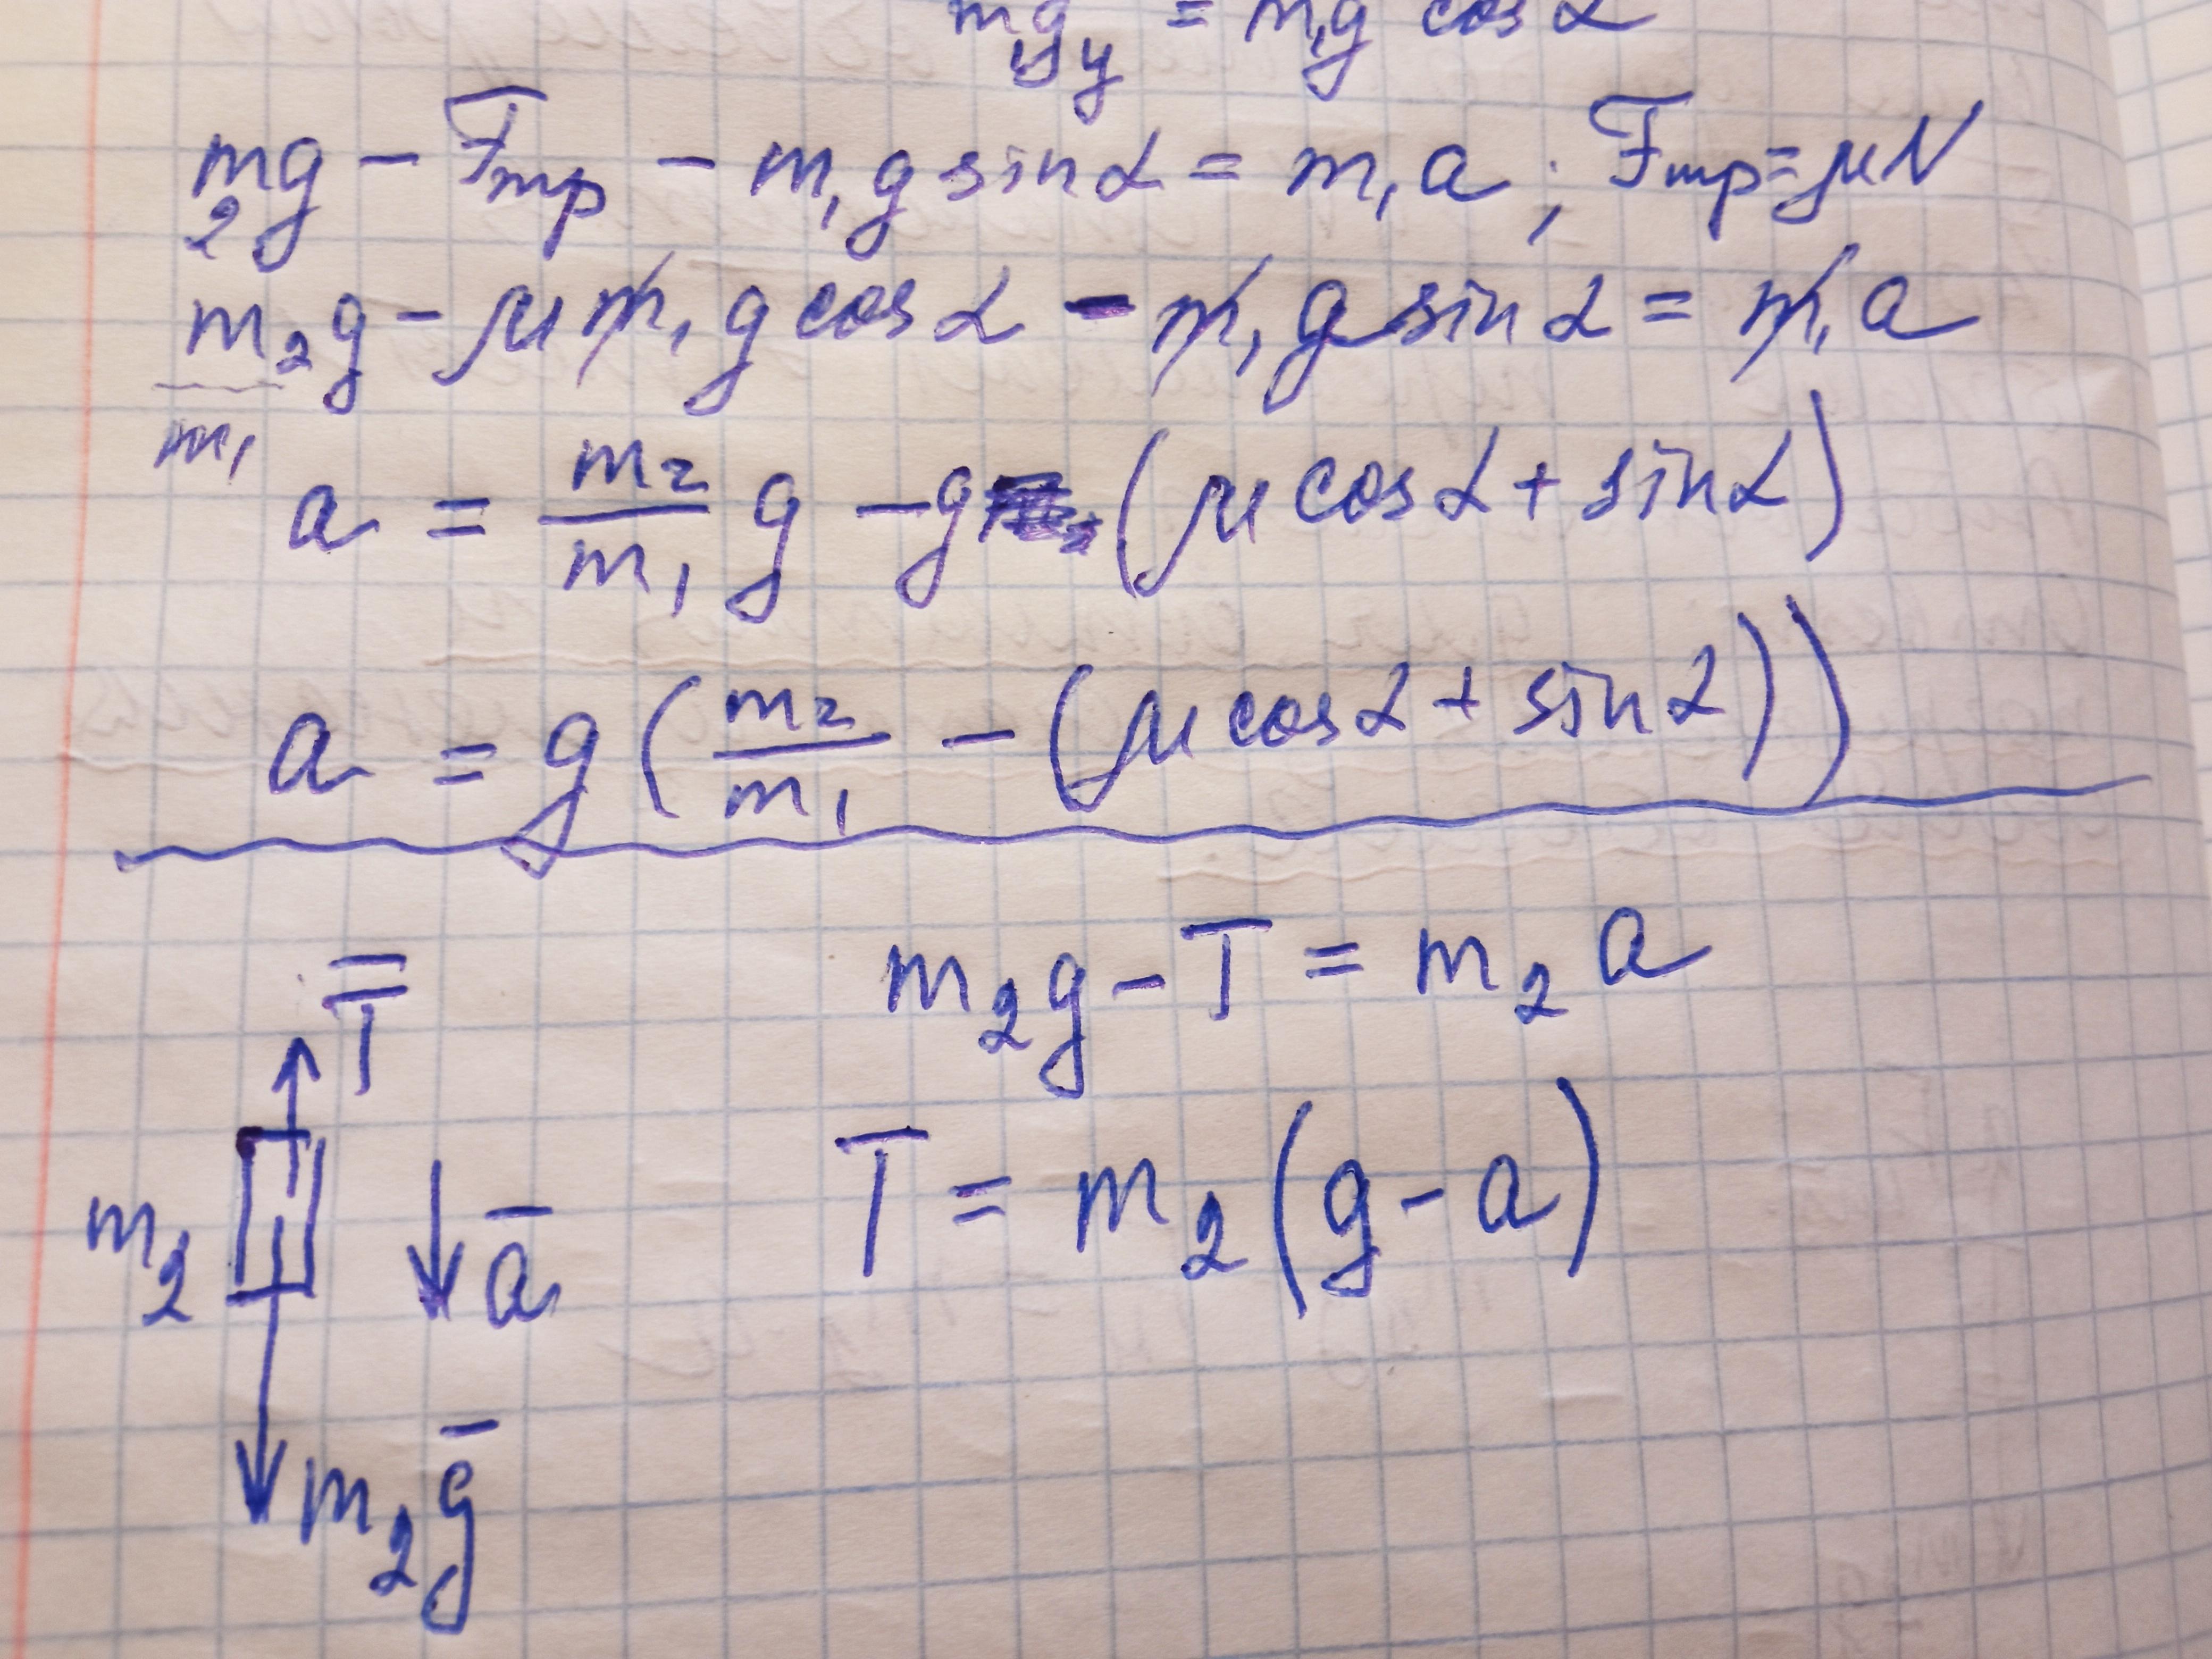 m₁g_y = m₁g cos α
m₂g − Fтр − m₁g sin α = m₁a ; Fтр = μN
m₂g − μm₁g cos α − m₁g sin α = m₁a
m₁
a = m₂/m₁ g − g (μ cos α + sin α)
a = g (m₂/m₁ − (μ cos α + sin α))
m₂g − T = m₂a
T̄
T = m₂(g − a)
m₂
ā
m₂ḡ